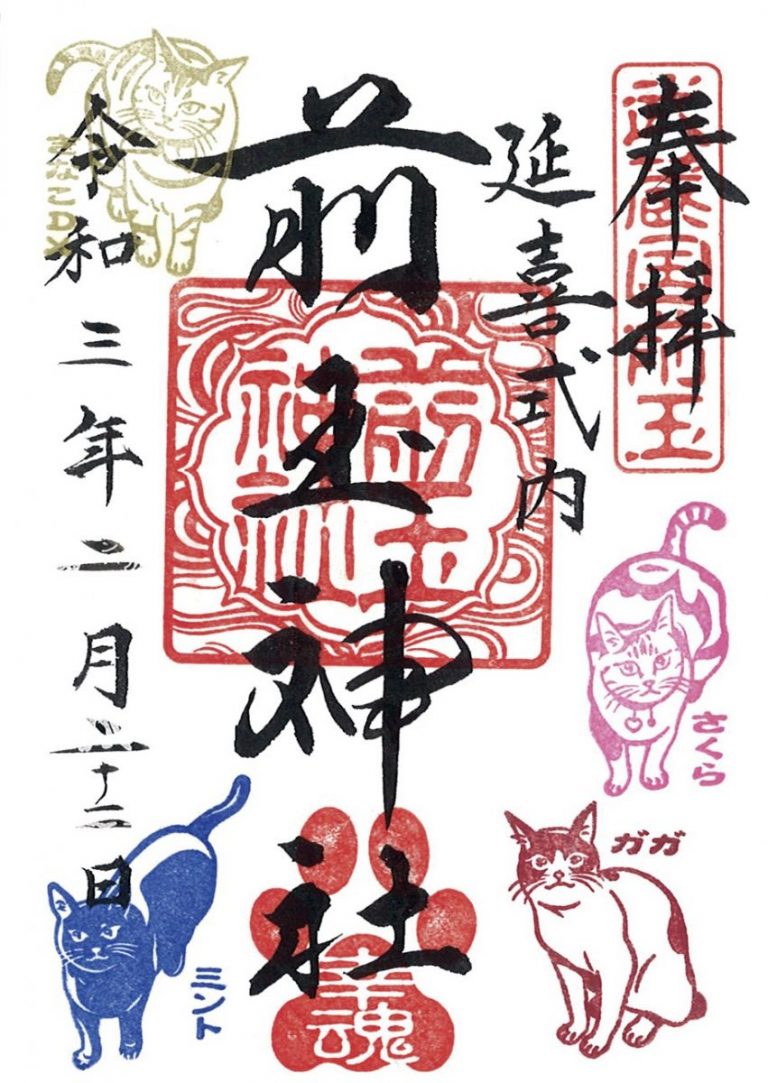 奉拝
武蔵国前玉
延喜式内
前玉神社
幸魂
令和三年二月二十二日
さくら
ガガ
ミント
きなこ